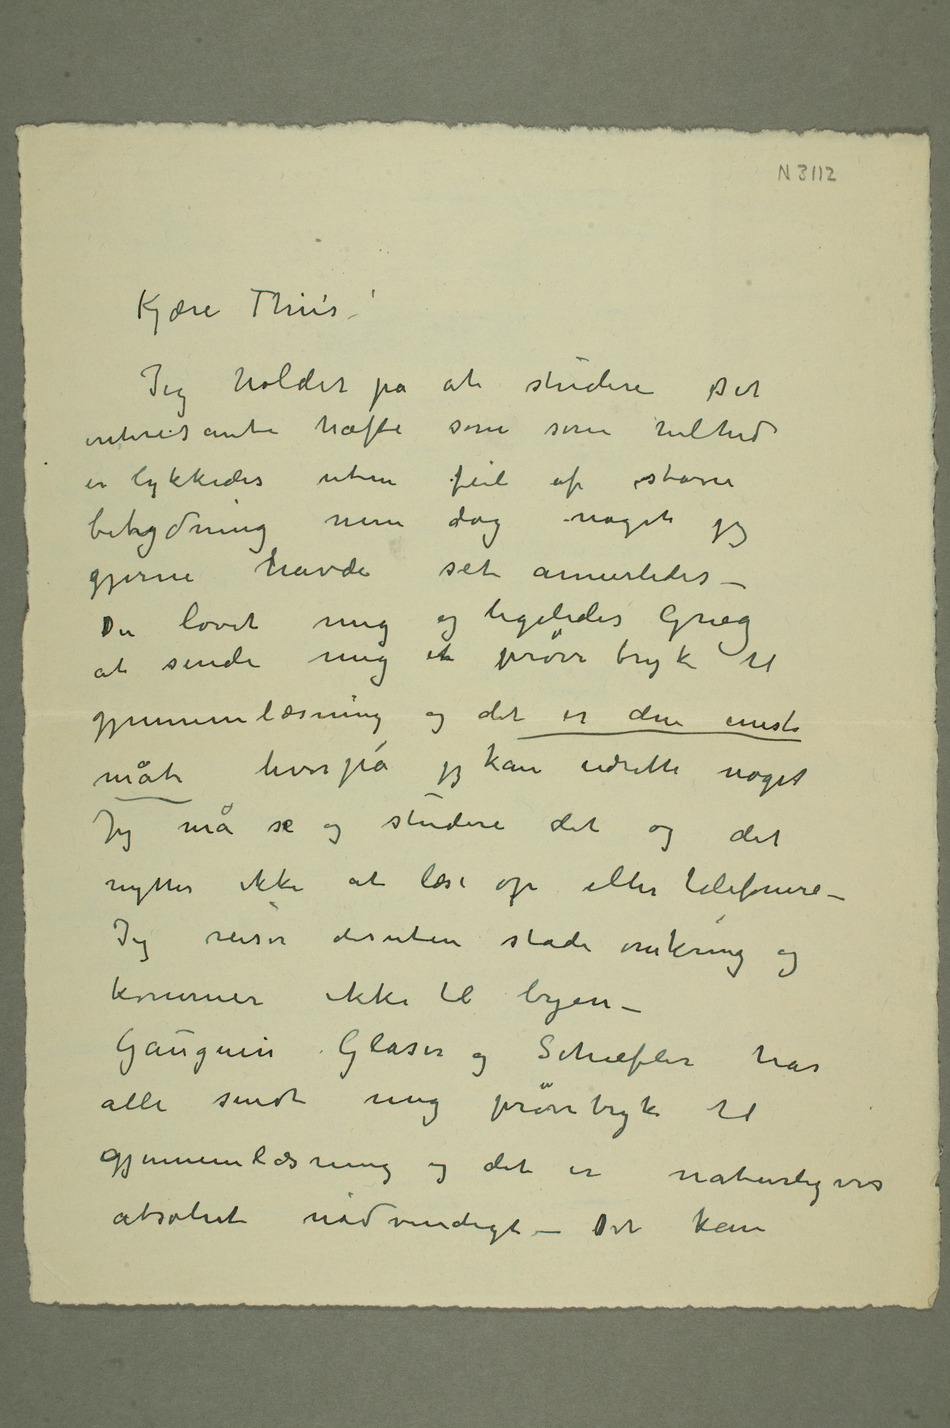 N 3112
Kjære Thiis!
Jeg holder på at studere Det
interesante hæfte som som helhed
er lykkedes uten feil af større
betydning men dog noget jeg
gjerne havde set annerledes –
Du lovet mig og ligeledes Grieg
at sende mig et prøve tryk til
gjennemlæsning og det er den eneste
måte hvorpå jeg kan udrette noget
Jeg må se og studere det og det
nytter ikke at læse op eller telefonere –
Jeg reiser desuten stadi omkring og
kommer ikke til byen –
Gauguin Glaser og Schiefler har
alle sendt mig prøvetryk til
gjennemlæsning og det er naturligvis
absolut nødvendigt – Det kan